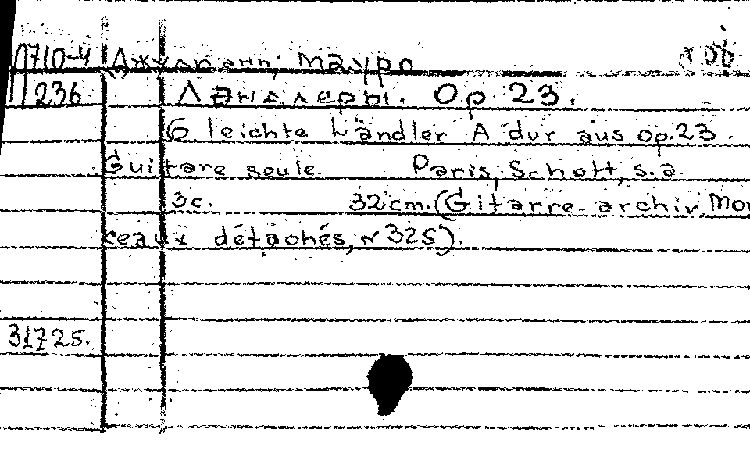 П710-4 Джулиани, Мауро
236 Лэнслеры. Op 23.
6 leichte Ländler A dur aus op.23.
Guitare seule Paris, Schott, s.a.
3c. 32cm. (Gitarre-archiv, Mor
ceaux détachés, N 325).
31725.